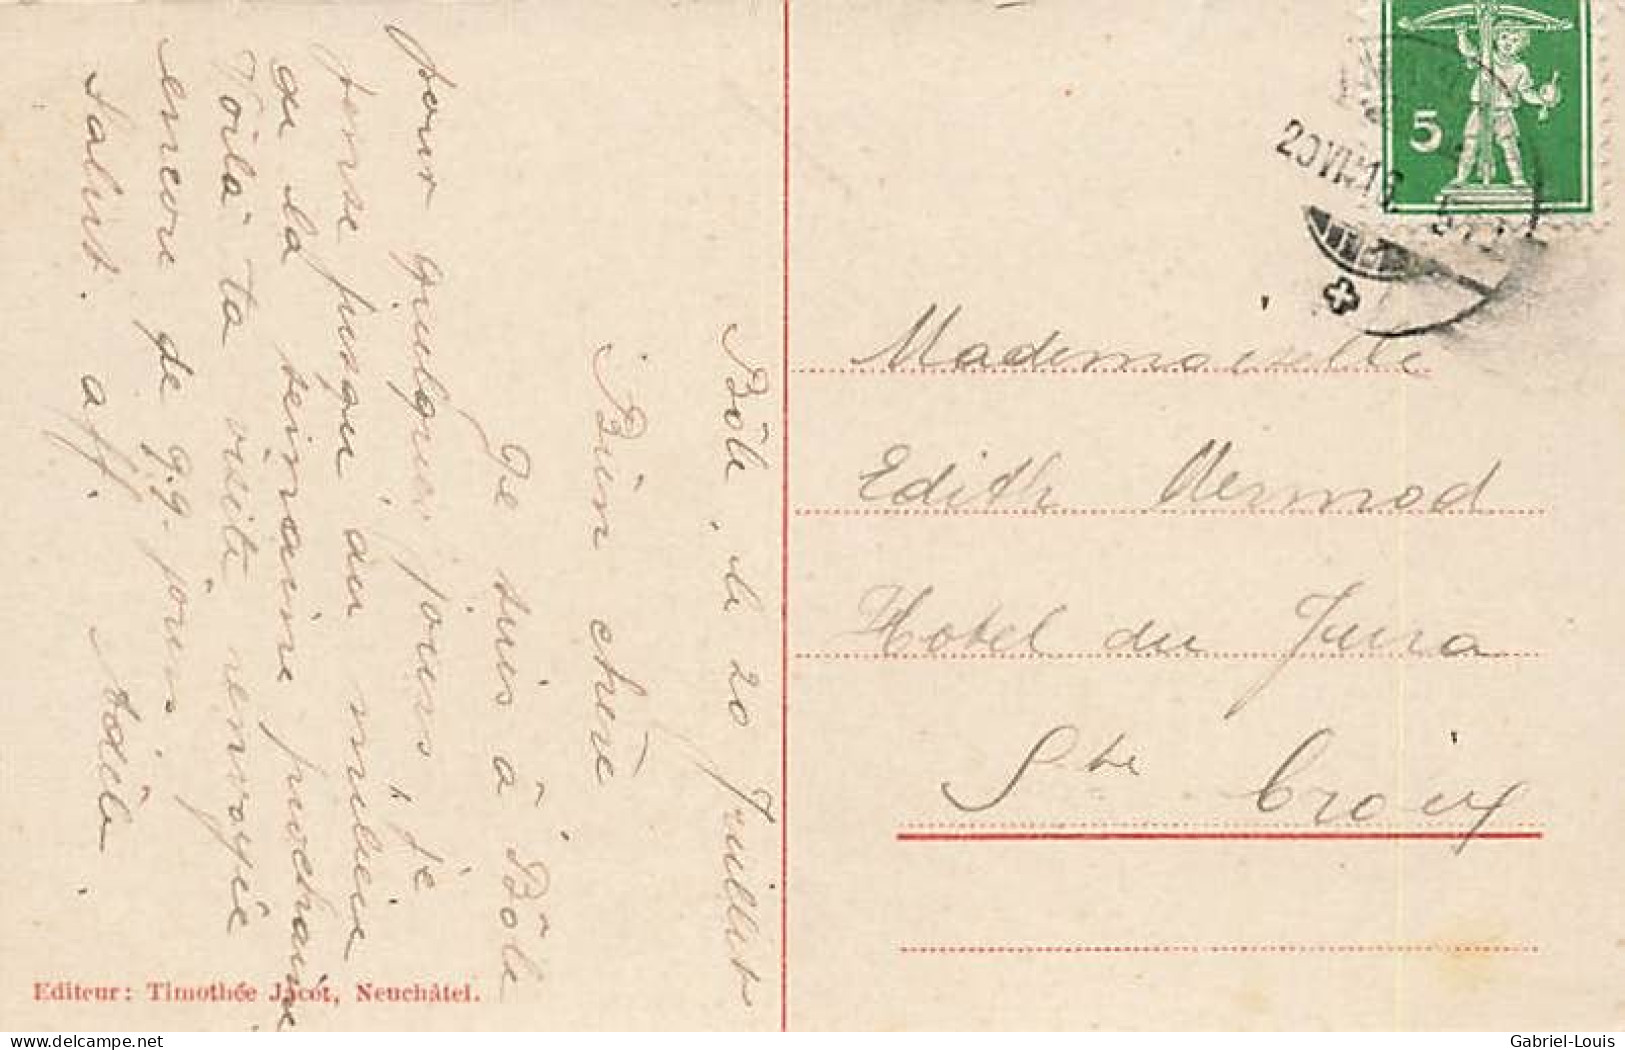 Bôle, le 20 Juillet
Bien chère
Je suis à Bôle
pour quelques jours, je
pense jusqu'au milieu
de la semaine prochaine
Voilà ta visite renvoyée
encore de q.q. jours
Saluts. aff.
Adèle.
Editeur: Timothée Jacot, Neuchâtel.
5
20 VII
Mademoiselle
Edith Mermod
Hotel du Jura
Ste Croix
delcampe.net
Gabriel-Louis